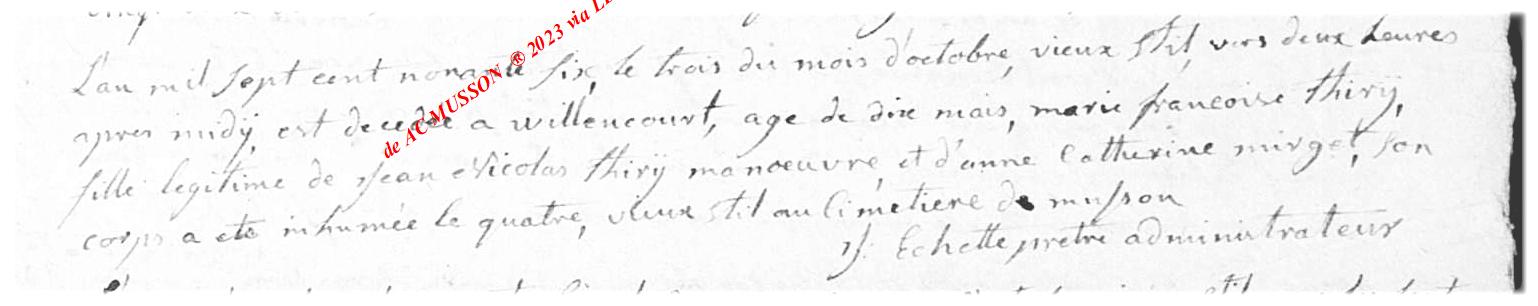 L'an mil sept cent nonante six, le trois du mois d'octobre, vieux stil, vers deux heures
apres midÿ, est decedée a willencourt, age de dix mais, marie francoise thirÿ,
fille legitime de jean Nicolas thirÿ manoeuvre, et d'anne Catherine mirgel, son
corps a eté inhumée le quatre, vieux stil au Cimetiere de musson
Echette pretre administrateur
de ACMUSSON ® 2023 via